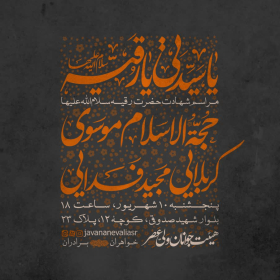 یا سیدتی یا رقیه سلام الله علیها
مراسم شهادت حضرت رقیه سلام‌الله‌علیها
حجة الاسلام موسوی
کربلایی مجید فدایی
پنجشنبه ۱۰ شهریور، ساعت ۱۸
بلوار شهید صدوقی، کوچه ۱۲، پلاک ۲۳
هیئت جوانان ولی عصر
javananevaliasr
خواهران برادران